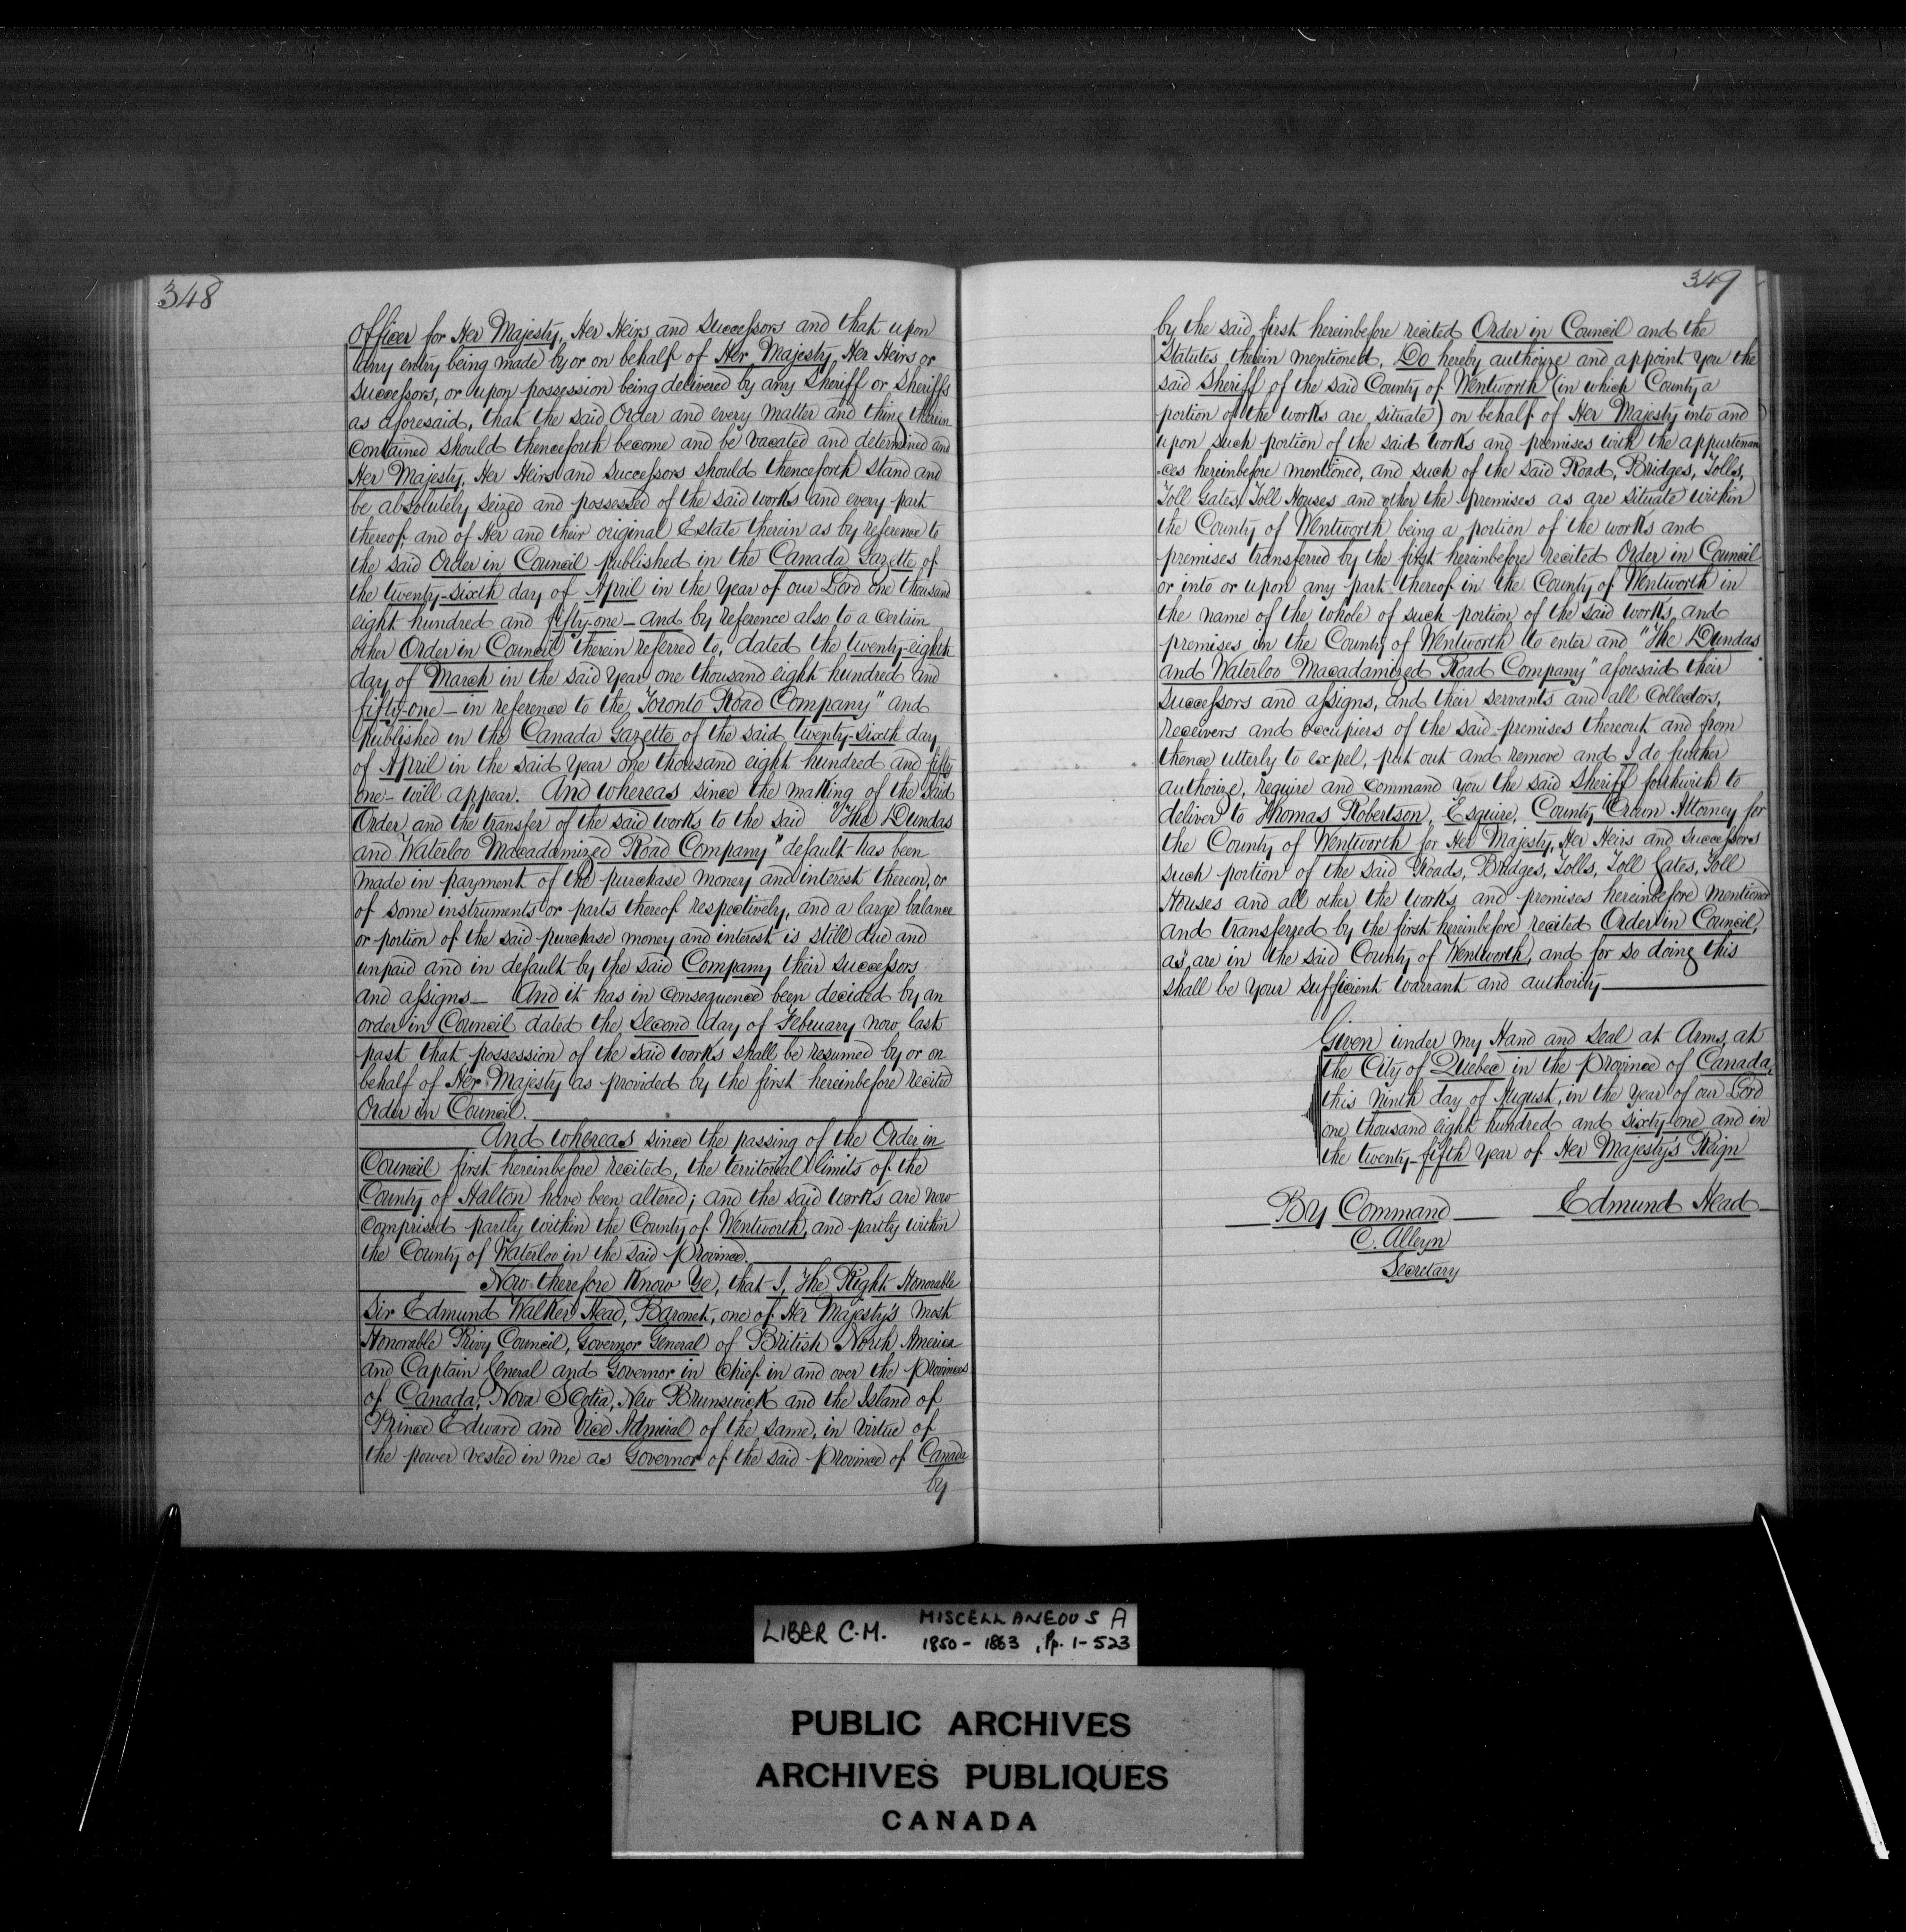 348
Officer for Her Majesty, Her Heirs and Successors and that upon
any entry being made by or on behalf of Her Majesty, Her Heirs or
Successors, or upon possession being delivered by any Sheriff or Sheriffs
as aforesaid, that the said Order and every matter and thing therein
contained should thenceforth become and be vacated and determined and
Her Majesty, Her Heirs and Successors should thenceforth stand and
be absolutely seized and possessed of the said works and every part
thereof, and of Her and their original Estate therein as by reference to
the said Order in Council published in the Canada Gazette of
the twenty-sixth day of April in the Year of our Lord one thousand
eight hundred and fifty-one – and by reference also to a certain
other Order in Council therein referred to, dated the twenty-eighth
day of March in the said Year one thousand eight hundred and
fifty-one – in reference to the "Toronto Road Company" and
published in the Canada Gazette of the said twenty-sixth day
of April in the said Year one thousand eight hundred and fifty
one – will appear. And whereas since the making of the said
Order and the transfer of the said works to the said "The Dundas
and Waterloo Macadamized Road Company" default has been
made in payment of the purchase money and interest thereon, or
of some instruments or parts thereof respectively, and a large balance
or portion of the said purchase money and interest is still due and
unpaid and in default by the said Company their successors
and assigns – And it has in consequence been decided by an
order in Council dated the Second day of February now last
past that possession of the said works shall be resumed by or on
behalf of Her Majesty as provided by the first hereinbefore recited
Order in Council.
And whereas since the passing of the Order in
Council first hereinbefore recited, the territorial limits of the
County of Halton have been altered; and the said works are now
comprised partly within the County of Wentworth, and partly within
the County of Waterloo in the said Province.
Now therefore Know Ye, that I, The Right Honorable
Sir Edmund Walker Head, Baronet, one of Her Majesty's most
Honorable Privy Council, Governor General of British North America
and Captain General and Governor in Chief in and over the Provinces
of Canada, Nova Scotia, New Brunswick and the Island of
Prince Edward and Vice Admiral of the same, in virtue of
the power vested in me as Governor of the said Province of Canada
by
349
by the said first hereinbefore recited Order in Council and the
Statutes therein mentioned, Do hereby authorize and appoint you the
said Sheriff of the said County of Wentworth (in which County a
portion of the works are situate) on behalf of Her Majesty into and
upon such portion of the said works and premises with the appurtenan
-ces hereinbefore mentioned, and such of the said Road, Bridges, Tolls,
Toll Gates, Toll Houses and other the premises as are situate within
the County of Wentworth being a portion of the works and
premises transferred by the first hereinbefore recited Order in Council
or into or upon any part thereof in the County of Wentworth in
the name of the whole of such portion of the said works, and
premises in the County of Wentworth to enter and "The Dundas
and Waterloo Macadamized Road Company" aforesaid their
successors and assigns, and their servants and all Collectors,
receivers and occupiers of the said premises thereout and from
thence utterly to expel, put out and remove and I do further
authorize, require and command you the said Sheriff forthwith to
deliver to Thomas Robertson, Esquire, County Crown Attorney for
the County of Wentworth for Her Majesty, Her Heirs and Successors
such portion of the said Roads, Bridges, Tolls, Toll Gates, Toll
Houses and all other the works and premises hereinbefore mentioned
and transferred by the first hereinbefore recited Order in Council,
as are in the said County of Wentworth, and for so doing this
shall be your sufficient warrant and authority
Given under my Hand and Seal at Arms, at
the City of Quebec in the Province of Canada,
this ninth day of August, in the year of our Lord
one thousand eight hundred and sixty-one and in
the twenty-fifth Year of Her Majesty's Reign
By Command Edmund Head
C. Alleyn
Secretary
LIBER C.M. MISCELLANEOUS A
1850 - 1863, Pp. 1-523
PUBLIC ARCHIVES
ARCHIVES PUBLIQUES
CANADA